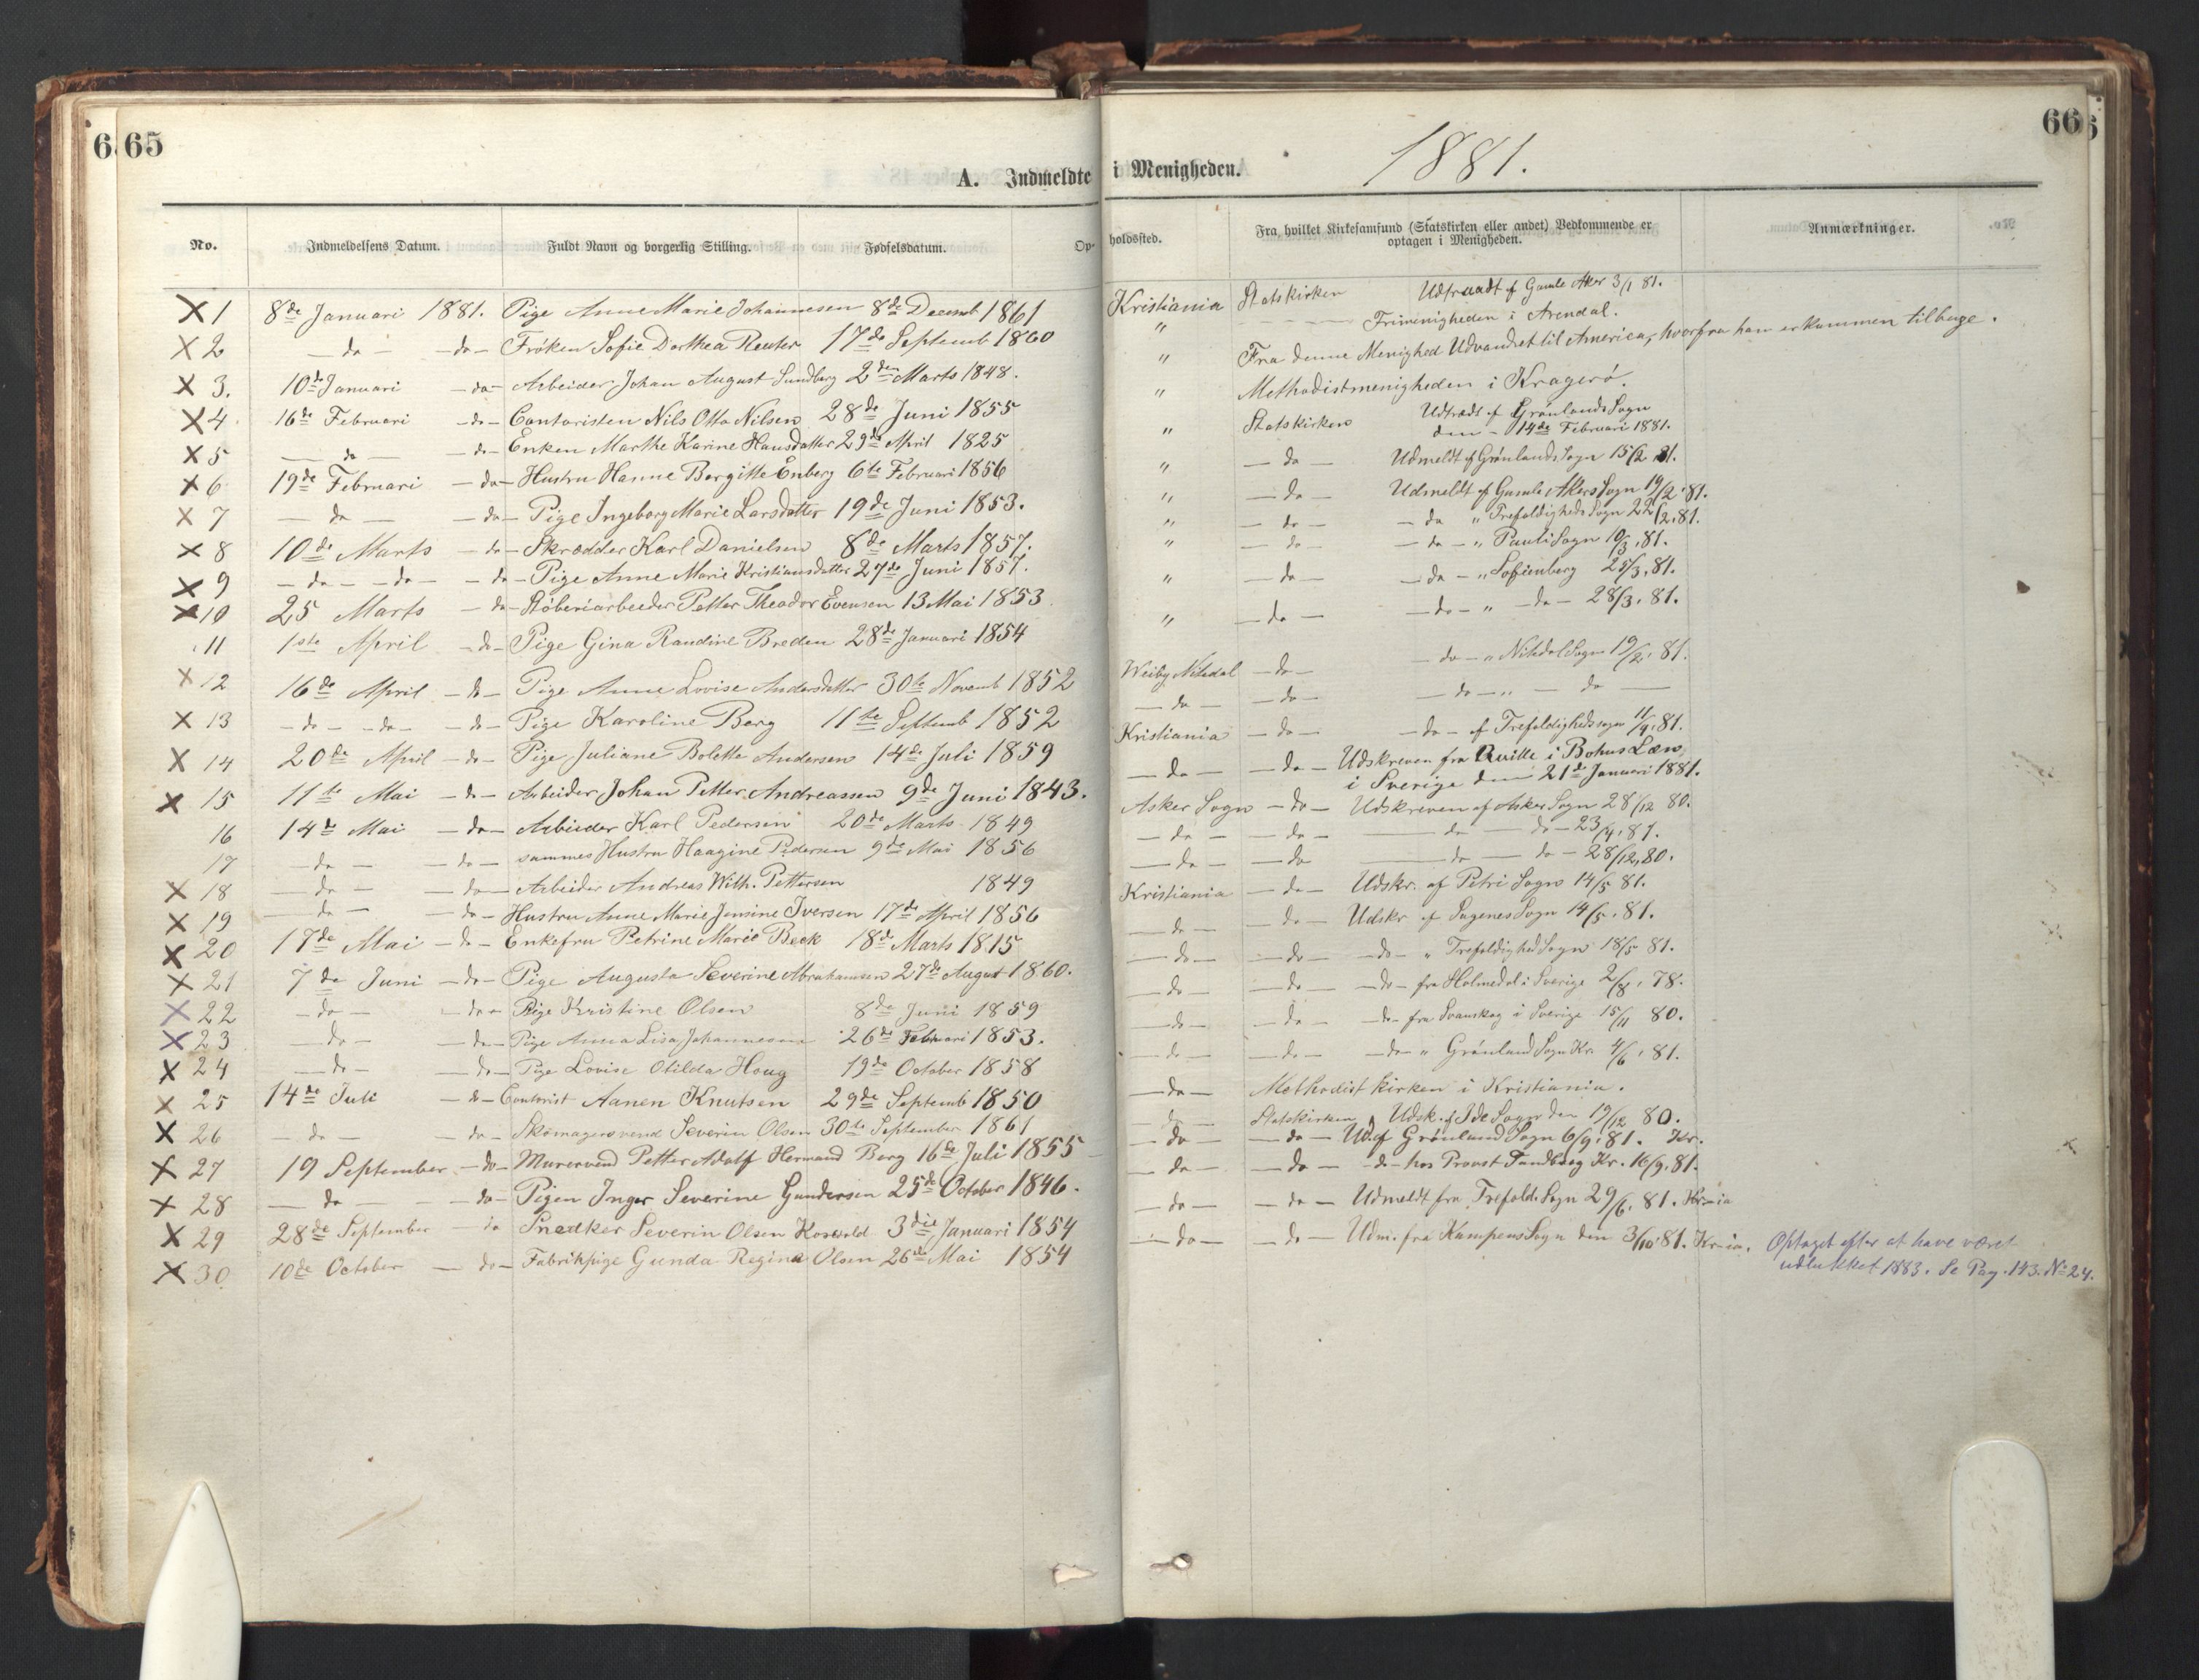 65
A. Indmeldte
No. Indmeldelsens Datum. Fuldt Navn og borgerlig Stilling. Fødselsdatum. Op-
X 1 8de Januari 1881. Pige Anne Marie Johannesen 8de Decemb 1861
X 2 — do — — do — Frøken Sofie Dorthea Reuter 17de Septemb 1860
X 3. 10de Januari — do — Arbeider Johan August Sundberg 2den Marts 1848.
X 4 16de Februari — do — Contoristen Nils Otto Nilsen 28de Juni 1855
X 5 — do — — do — Enken Marthe Karine Hansdatter 29de April 1825
X 6 19de Februari — do — Hustru Hanne Bergitte Enberg 6te Februari 1856
X 7 — do — — do — Pige Ingeborg Marie Larsdatter 19de Juni 1853.
X 8 10de Marts — do — Skrædder Karl Danielsen 8de Marts 1857.
X 9 — do — — do — — do — Pige Anne Marie Kristiansdatter 27de Juni 1857.
X 10 25 Marts — do — Støberiarbeider Petter Theodor Evensen 13 Mai 1853
11 1ste April — do — Pige Gina Randine Breden 28de Januari 1854
X 12 16de April — do — Pige Anne Lovise Andersdatter 30te Novemb 1852
X 13 — do — — do — — do — Pige Karoline Berg 11te Septemb 1852
X 14 20de April — do — Pige Juliane Bolette Andersen 14de Juli 1859
X 15 11te Mai — do — Arbeider Johan Petter Andreassen 9de Juni 1843.
16 14de Mai — do — Arbieder Karl Pedersen 20de Marts 1849
17 — do — — do — sammes Hustru Haagine Pedersen 9de Mai 1856
X 18 — do — — do — Arbeider Andreas Wilh. Pettersen 1849
X 19 — do — — do — Hustru Anne Marie Jensine Iversen 17de April 1856
X 20 17de Mai — do — Enkefru Petrine Marie Beck 18de Marts 1815
X 21 7de Juni — do — Pige Augusta Severine Abrahamsen 27de August 1860.
X 22 — do — — do — Pige Kristine Olsen 8de Juni 1859
X 23 — do — — do — Pige Anna Lisa Johannesen 26de Februari 1853.
X 24 — do — — do — Pige Lovise Otilda Houg 19de October 1858
X 25 14de Juli — do — Contorist Aanen Knutsen 29de Septemb 1850
X 26 — do — — do — Skomagersvend Severin Olsen 30te September 1861
X 27 19 September — do — Murersvend Petter Adolf Hermand Berg 16de Juli 1855
X 28 — do — — do — Pigen Inger Severine Gundersen 25de October 1846.
X 29 28de September — do Snedker Severin Olsen 3die Januari 1854
X 30 10de October — do — Fabrikpige Gunda Regina Olsen 26de Mai 1854
66
i Menigheden. 1881.
holdssted. Fra hvilket Kirkesamfund (Statskirken eller andet) Vedkommende er optagen i Menigheden. Anmærkninger.
Kristiania Statskirken Udtraadt af Gamle Aker 3/1 81.
" Frimenigheden i Arendal.
" Fra denne Menighed Udvandret til America, hvorfra han er kommen tilbage.
" Methodistmenigheden i Kragerø.
" Statskirken Udtrædt af Grønlands Sogn
den 14de Februari 1881.
" — do — Udmeldt af Grønlands Sogn 15/2 81.
" — do — Udmeldt af Gamle Akers Sogn 19/2 81.
" — do — — do " Trefoldigheds Sogn 22/2 81.
" — do — — do — " Pauli Sogn 10/3 81.
" — do — — do — " Sofienberg 25/3, 81.
" — do — — do — " — do — 28/3, 81.
Weiby, Nitedal — do — — do — " Nitedal Sogn 19/2, 81.
— do — — do — — do — " — do —
Kristiania — do — — do — af Trefoldigheds sogn 11/4, 81.
— do — — do — Udskreven fra Qville i Bohus Læn
i Sverige den 21de Januari 1881.
Asker Sogn — do — Udskreven af Asker Sogn 28/12 80.
— do — — do — — do — do — 23/4, 81.
— do — — do — do — do — 28/12, 80.
Kristiania — do — Udskr. af Petri Sogn 14/5 81.
— do — — do — Udskr af Sagenes Sogn 14/5, 81.
— do — — do — — do — " Trefoldighed Sogn 18/5 81.
— do — — do — — do — fra Holmedal i Sverige 2/8, 78.
— do — — do — — do — fra Svanskog i Sverige 15/11 80.
— do — — do — — do — " Grønland Sogn Kr. 4/6, 81.
— do — Methodist kirken i Kristiania.
— do — Statskirken, Udsk. af Ide Sogn den 19/12 80.
— do — — do — Ud. af Grønland Sogn 6/9, 81. Kr.
— do — — do — — do — hos Provst Kr. 16/9, 81.
— do — — do — Udmeldt fra Trefold. Sogn 29/6, 81. Kr-ia
— do — — do — Udm. fra Kampens Sogn den 3/10 81. Kr-ia. Optaget efter at have været
udlukket 1883. Se Pag. 143. No 24.